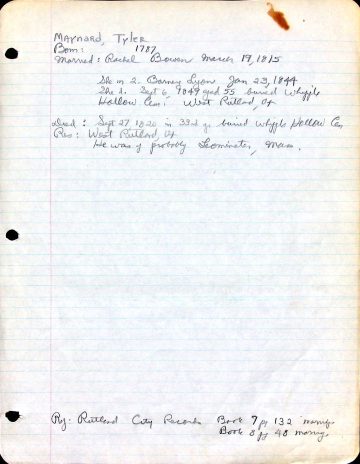 Maynard, Tyler
Born: 1787
Married: Rachel Bowen March 19, 1815
She m 2. Barney Lyon Jan 23, 1844
She d. Sept 6, 1849 aged 55 buried Whipple
Hollow Cem. West Rutland, Vt
Died: Sept 27, 1820 in 33rd y. buried Whipple Hollow Cem
Res: West Rutland, Vt
He was of probably Leominster, Mass.
Ref: Rutland City Records Book 7 pg 132 marriages
Book 8 pg 48 marriages